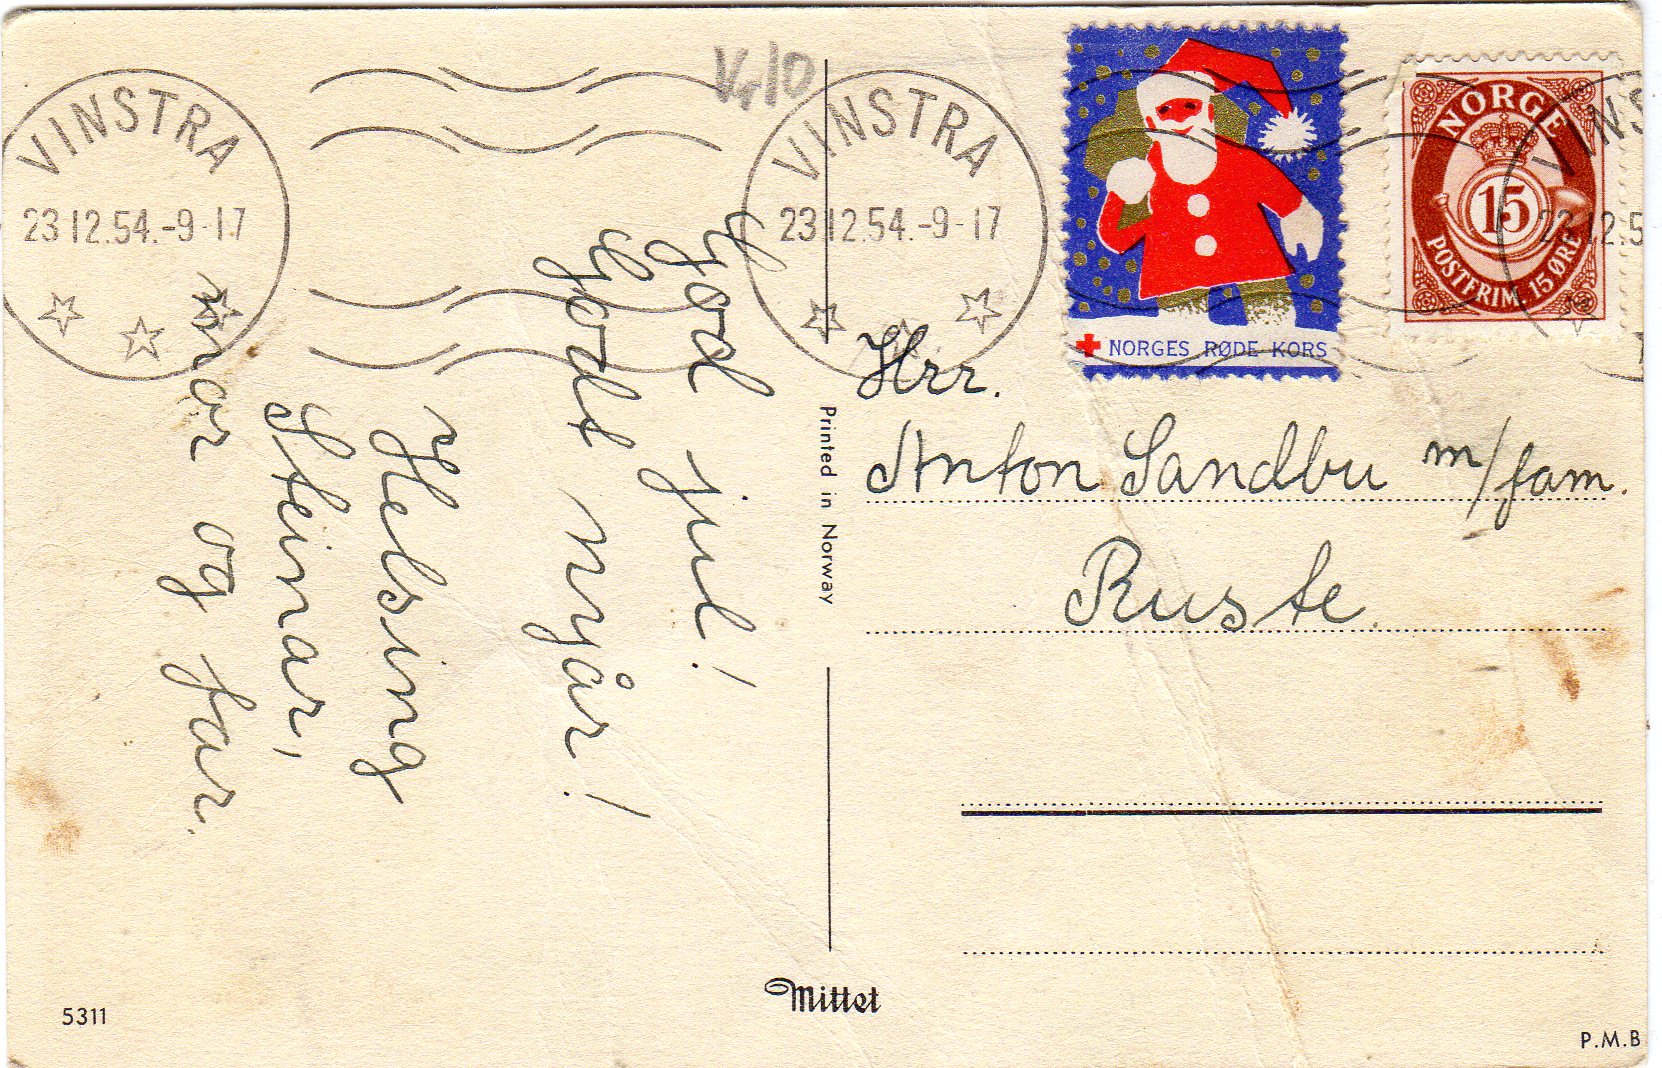 VINSTRA
23.12.54.-9-17
VINSTRA
23.12.54.-9-17
VINS
23.12.5
NORGES RØDE KORS
NORGE
15
POSTFRIM. 15 ØRE
God jul!
Godt nyår!
Helsing
Steinar,
mor og far.
Printed in Norway
Hrr.
Anton Sandbu m/fam.
Ruste.
Mittet
5311
P.M.B